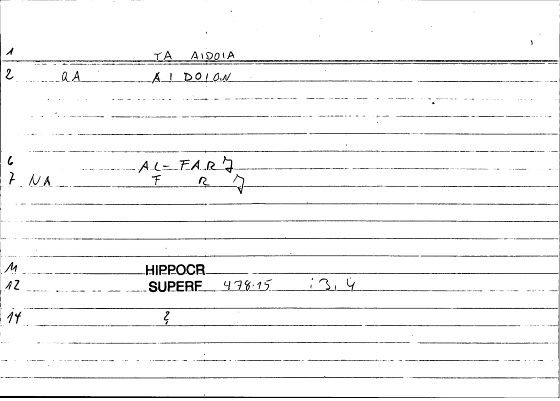 1 TA AIDOIA
2 QA AIDOION
6 AL-FARJ
7 NA F R J
11 HIPPOCR
12 SUPERF 478.15 :3,4
14